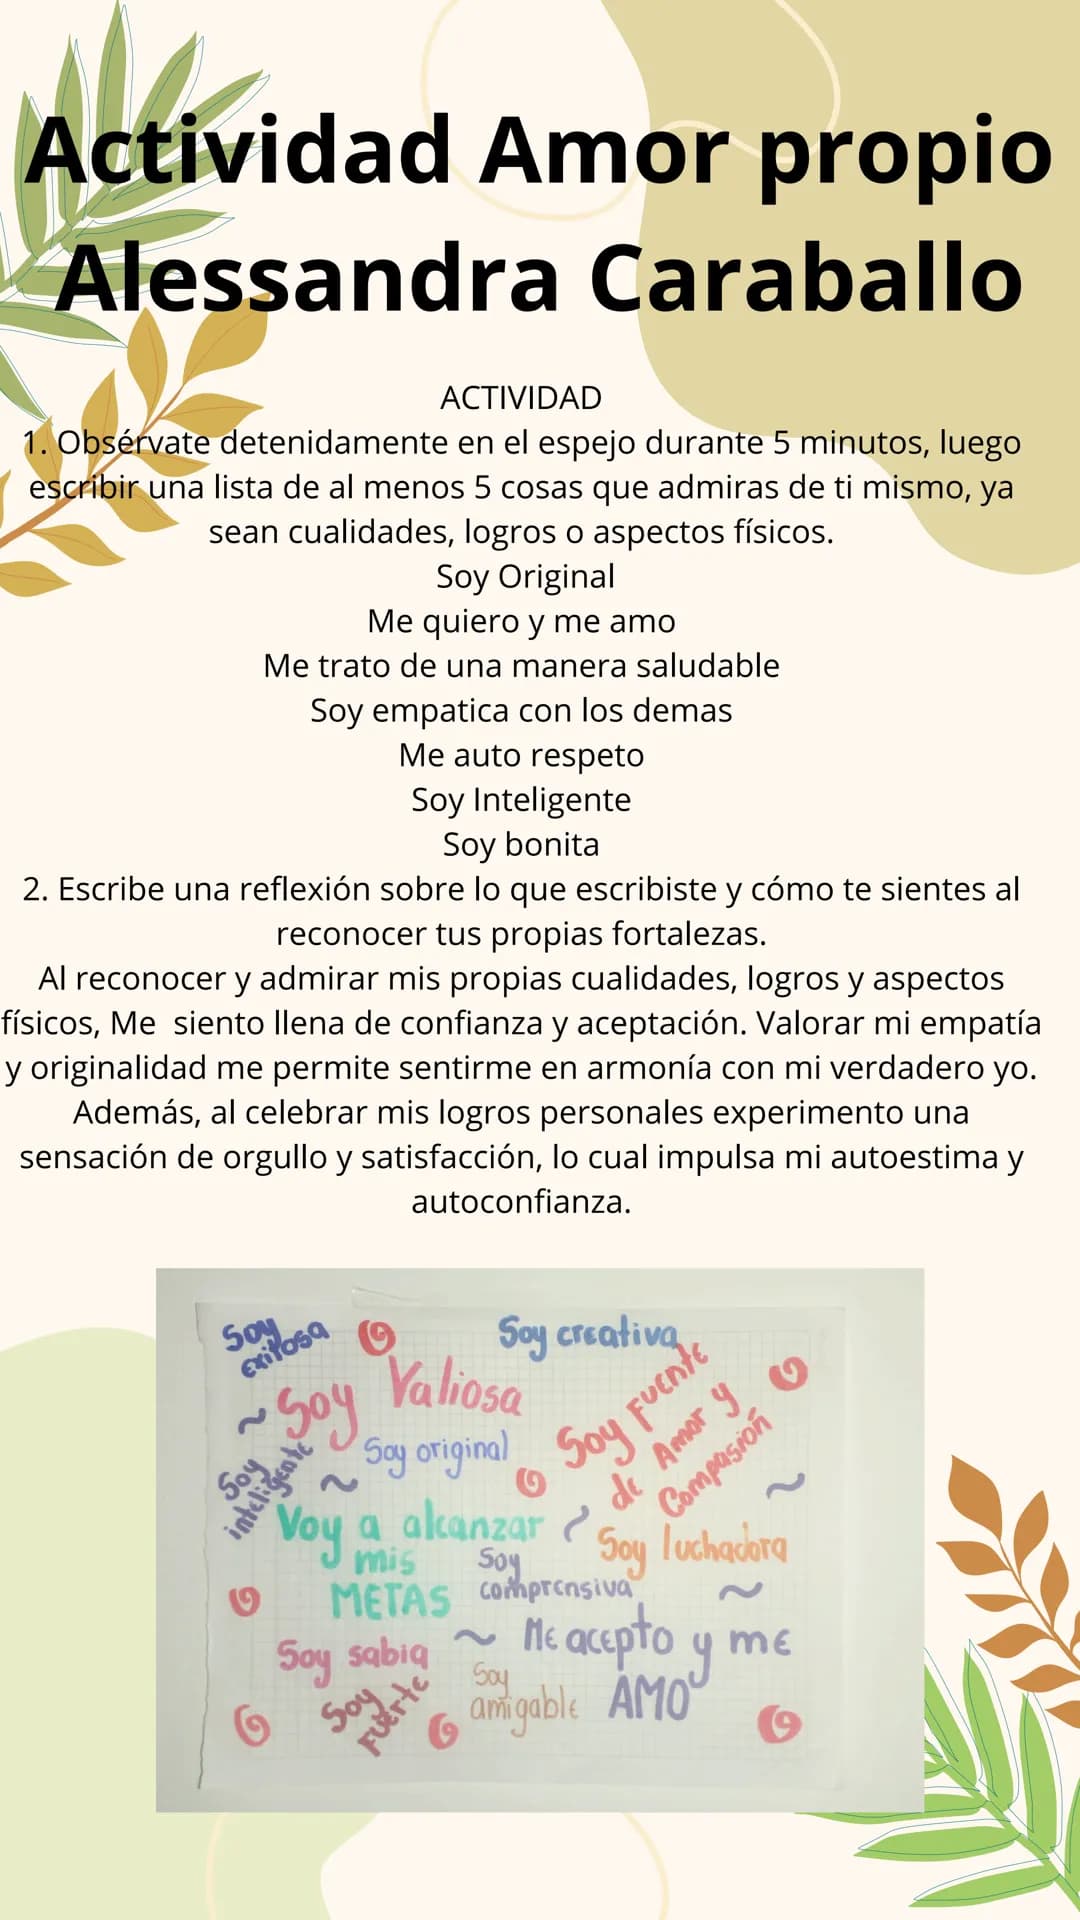 Actividad Amor propio
Alessandra Caraballo
ACTIVIDAD
1. Obsérvate detenidamente en el espejo durante 5 minutos, luego
escribir una lista de al menos 5 cosas que admiras de ti mismo, ya
sean cualidades, logros o aspectos físicos.
Soy Original
Me quiero y me amo
Me trato de una manera saludable
Soy empatica con los demas
Me auto respeto
Soy Inteligente
Soy bonita
2. Escribe una reflexión sobre lo que escribiste y cómo te sientes al
reconocer tus propias fortalezas.
Al reconocer y admirar mis propias cualidades, logros y aspectos
físicos, Me siento llena de confianza y aceptación. Valorar mi empatía
y originalidad me permite sentirme en armonía con mi verdadero yo.
Además, al celebrar mis logros personales experimento una
sensación de orgullo y satisfacción, lo cual impulsa mi autoestima y
autoconfianza.
Soy
exitosa
Soy creativa
Soy Valiosa
Soy Fuente
de Amor y
Compasión
Soy original
Soy
inteligente
Voy a alcanzar
mis
METAS
Soy luchadora
Soy
comprensiva
Me acepto y me
AMO
Soy sabia
Soy
amigable
Soy
Fuerte